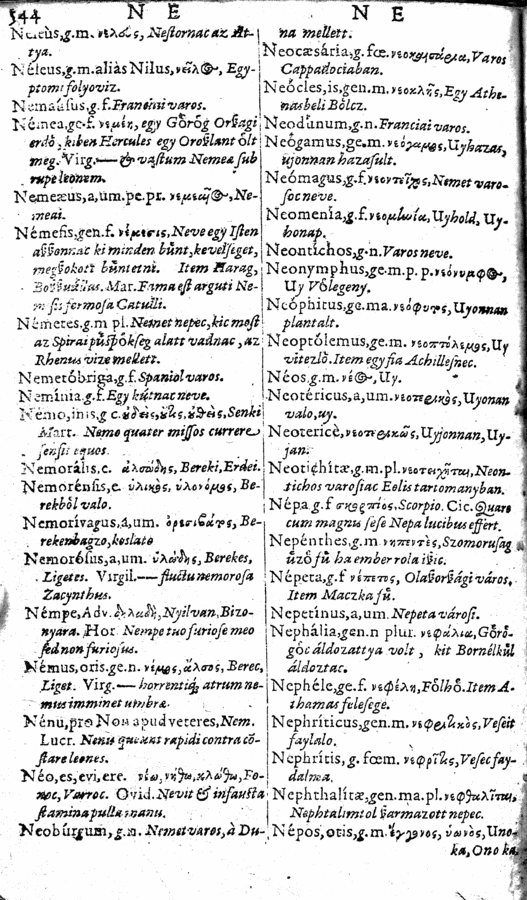 544 N E N E
Neleus, g.m. νελεὺς, Nestornac az At-
tya.
Néleus, g.m. aliàs Nilus, νεῖλος, Egy-
ptomi folyoviz.
Nemausus, g.f. Franciai varos.
Némea, ge.f. νεμέη, egy Gőrőg Orſzagi
erdő, kiben Hercules egy Oroſzlant őlt
meg. Virg. — & vaſtum Nemea ſub
rupe leonem.
Nemeæus, a, um. pe. pr. νεμεαῖος, Ne-
meai.
Némeſis, gen.f. νέμεσις, Neve egy Iſten
aſzſzonnac ki minden bűnt, kevelſeget,
megſzokott bűntetni. Item Harag,
Mar. Fama eſt arguti Ne-
meſis formoſa Catulli.
Németes, g.m pl. Nemet nepec, kic moſt
az Spirai pűſpőkſeg alatt vadnac, az
Rhenus vize mellett.
Nemetóbriga, g.f. Spaniol varos.
Neminia, g.f. Egy kútnac neve.
Némo, inis, g c. οὐδεὶς, Senki
Mart. Nemo quater miſſos currere
ſenſit equos.
Nemorális, e. ἀλσώδης, Bereki, Erdei.
Nemorénſis, e. ὑλικὸς, ὑλονόμος, Be-
rekből valo.
Nemorívagus, a, um. ὀρεσιβάτης, Be-
rekenbagzo, keslate
Nemoróſus, a, um. ὑλώδης, Berekes,
Ligetes. Virgil. — fluctu nemoroſa
Zacynthus.
Némpe, Adv. δηλαδὴ, Nyilvan, Bizo-
nyara. Hor. Nempe tuo furioſe meo
ſed non furioſus.
Némus, oris. ge.n. νέμος, ἄλσος, Berec,
Liget. Virg. — horrentiq; atrum ne-
mus imminet umbra.
Nénu, pro Non apud veteres, Nem.
Lucr. Nenu queunt rapidi contra cō-
ſtare leones.
Néo, es, evi, ere. νέω, νήθω, κλώθω, Fo-
noc, Varroc. Ovid. Nevit & infauſta
ſtamina pulla manu.
Neobúrgum, g.n. Nemet varos, à Du-
na mellett.
Neocæsária, g. fœ. νεοκαισάρεια, Varos
Cappadociaban.
Neócles, is, gen.m. νεοκλῆς, Egy Athe-
nasbeli Bőlcz.
Neodúnum, g.n. Franciai varos.
Neógamus, ge.m. νεόγαμος, Uy hazas,
ujonnan hazaſult.
Neómagus, g.f. νεοντεῖχος, Nemet varo-
ſoc neve.
Neomenía, g.f. νεομηνία, Uy hold, Uy-
honap.
Neontíchos, g.n. Varos neve.
Neonymphus, ge.m. p. p. νεόνυμφος,
Uy Vőlegeny.
Neóphitus, ge.ma. νεόφυτος, Uyonnan
plantalt.
Neoptólemus, ge.m. νεοπτόλεμος, Uy
vitezlő. Item egy fia Achilleſnec.
Néos, g.m. νέος, Uy.
Neotéricus, a, um. νεοτερικὸς, Uyonan
valo, uy.
Neotericè, νεοτερικῶς, Uyjonnan, Uy-
jan.
Neotichítæ, g.m. pl. νεοτειχῆται, Neon-
tichos varoſiac Eolis tartomanyban.
Népa, g.f σκορπίος, Scorpio. Cic. Quare
cum magnu ſeſe Nepa lucibus effert.
Nepénthes, g.m. νηπενθὲς, Szomoruſag
űző fű ha ember rola iſzic.
Népeta, g.f νέπετος, Olaſzorſzági város.
Item Maczka fű.
Nepetínus, a, um. Nepeta városi.
Nephália, gen.n plur. νεφάλια, Gőrő-
gőc áldozattya volt, kit Bornélkűl
áldoztac.
Nephéle, ge.f. νεφέλη, Főlhő. Item A-
thamas feleſege.
Nephríticus, gen.m. νεφριτικὸς, Veſeit
faylalo.
Nephrítis, g. fœm. νεφρῖτις, Veſec fay-
dalma.
Nephthalítæ, gen. ma. pl. νεφθαλῖται,
Nephtalimtol ſzarmazott nepec.
Népos, otis, g.m. ἔγγονος, ὑωνὸς, Uno-
ka, Ono ka,